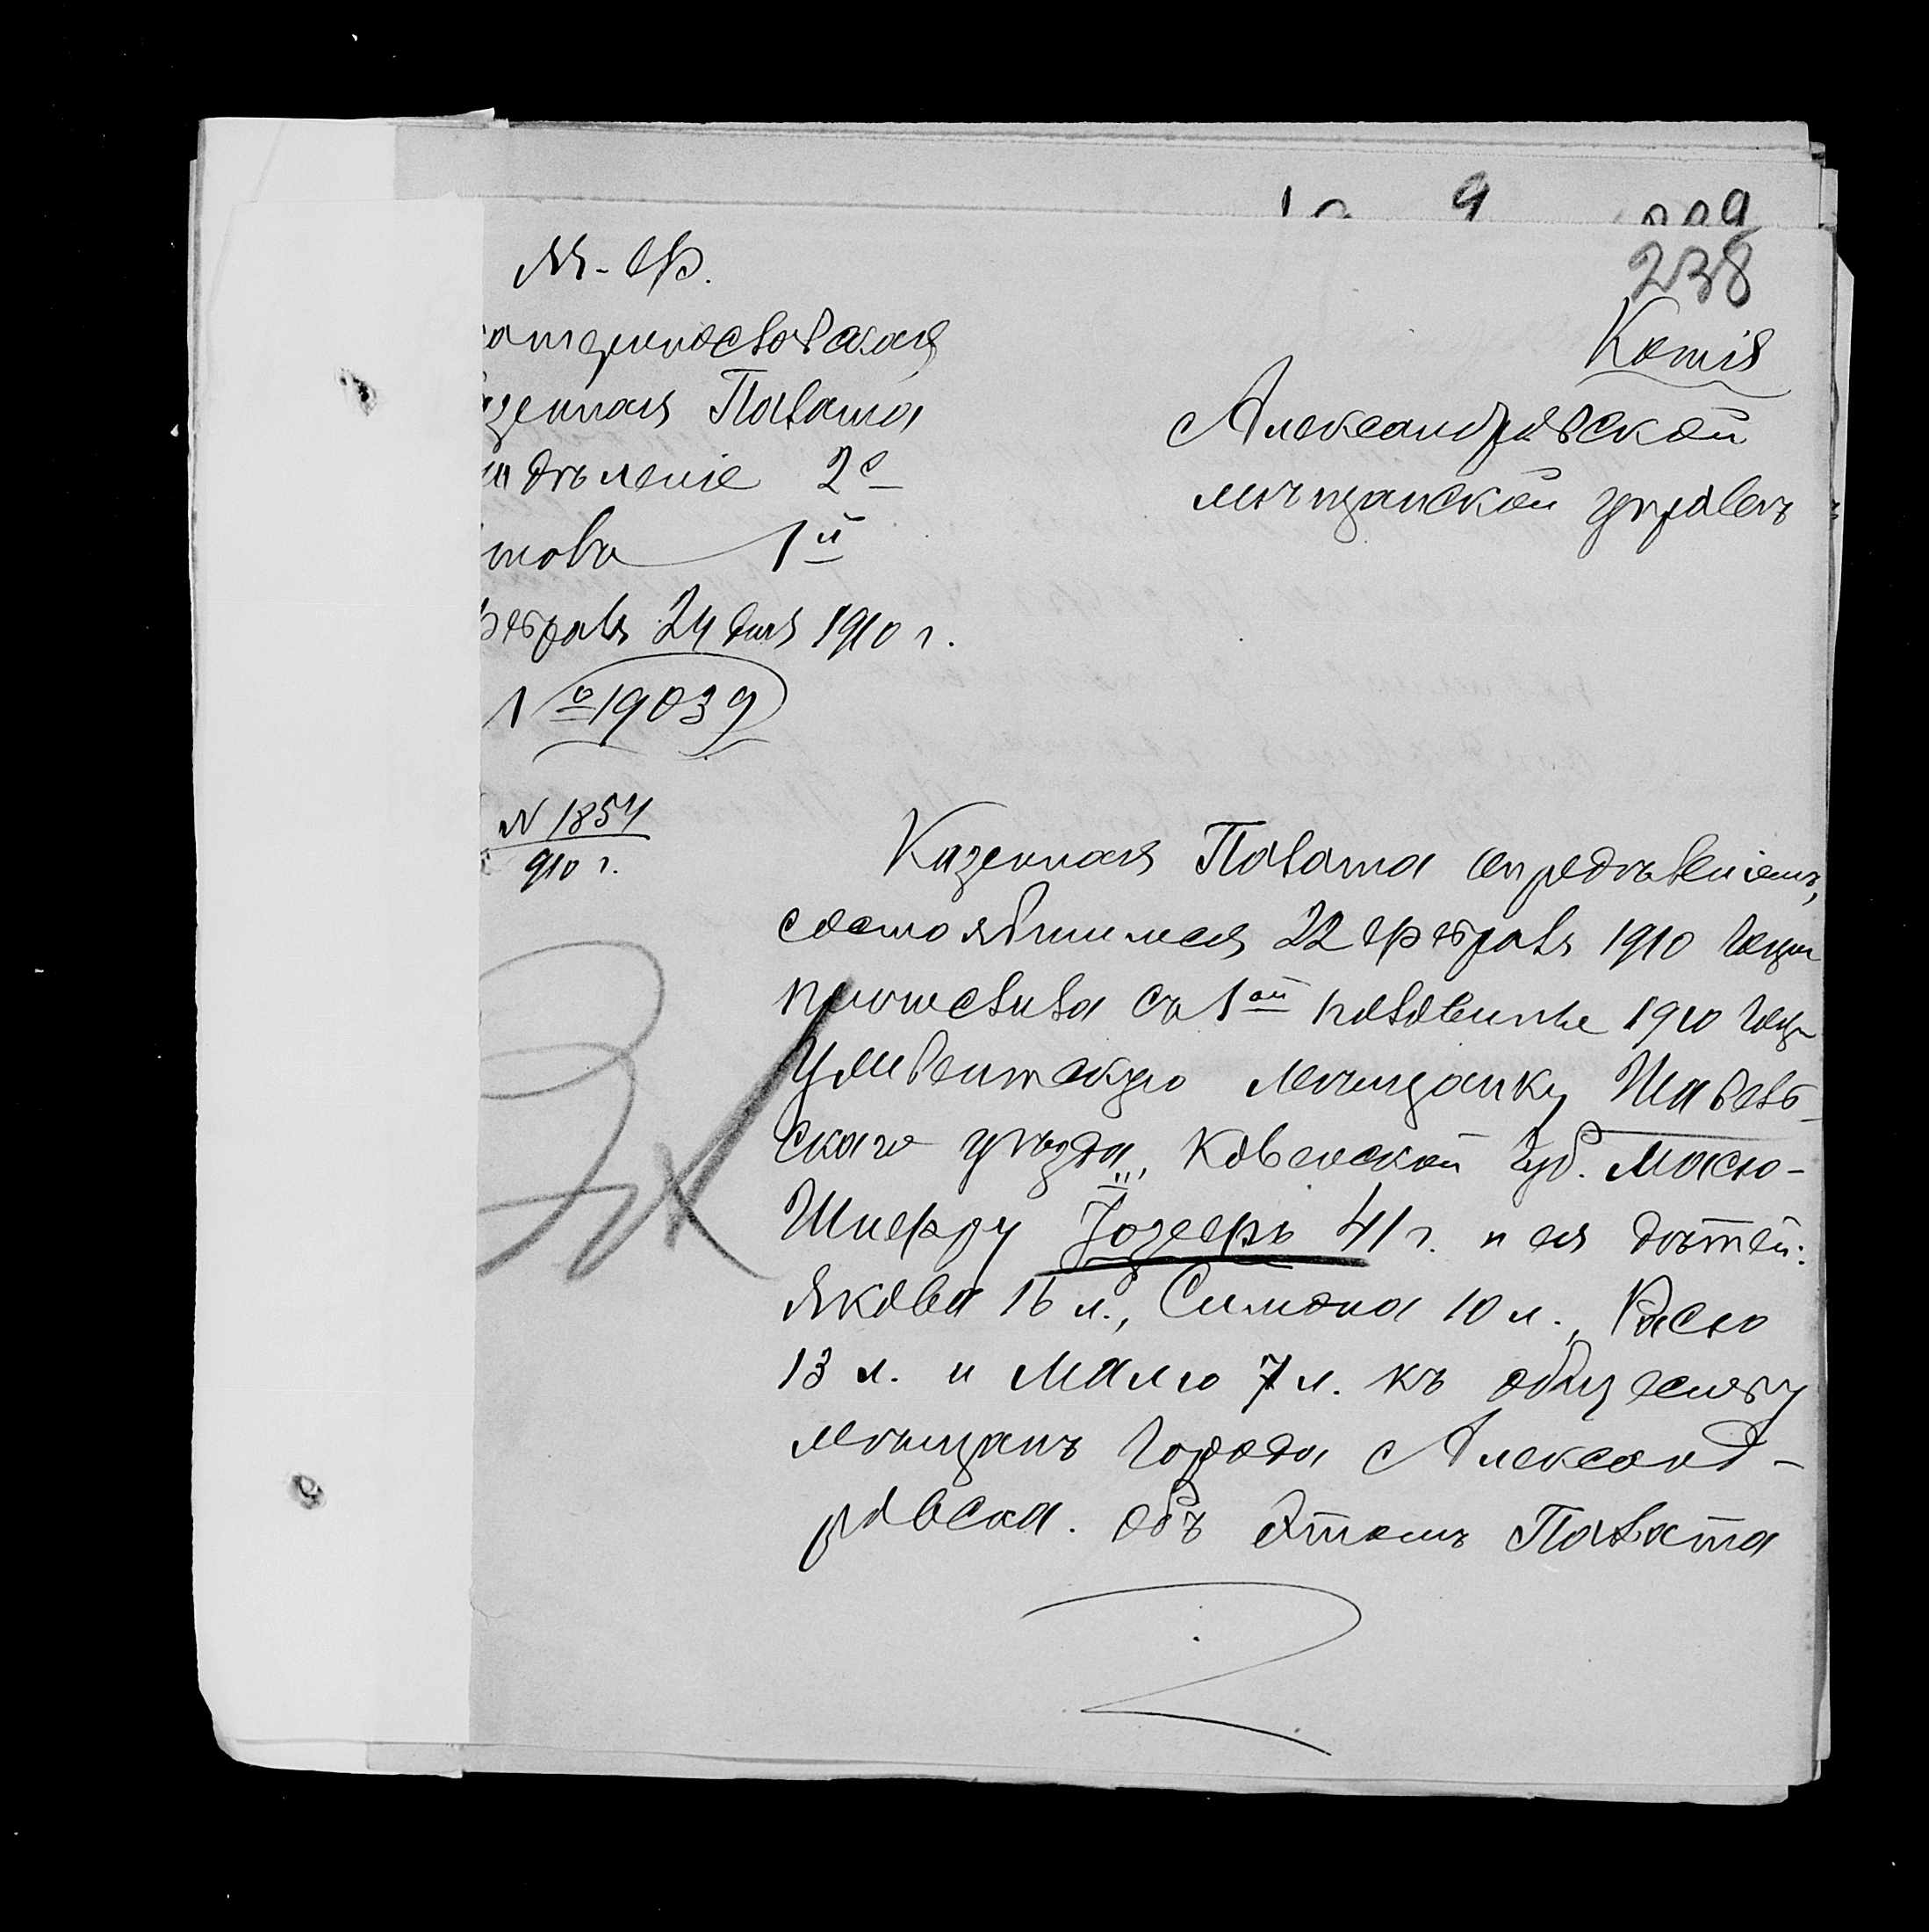 М. Ф.
катеринославская
азенная Палата
тдѣленіе 2е
стола 1й
Февраля 24 дня 1910 г.
№ 19039
N 1854
910 г.
238
Копія
Александровской
мѣщанской управѣ
Казенная Палата опредѣленіемъ,
состоявшимся 22 февраля 1910 года
причислила съ 1ой половины 1910 года
мѣщанку Шавель-
скаго уѣзда, Ковенской губ. Масю-
Шифру Іозефъ 41 г. и ея дѣтей:
Якова 16 л., Симона 10 л., Расю
13 л. и Малю 7 л. къ обществу
мѣщанъ города Александ-
ровска. Объ этомъ Палата